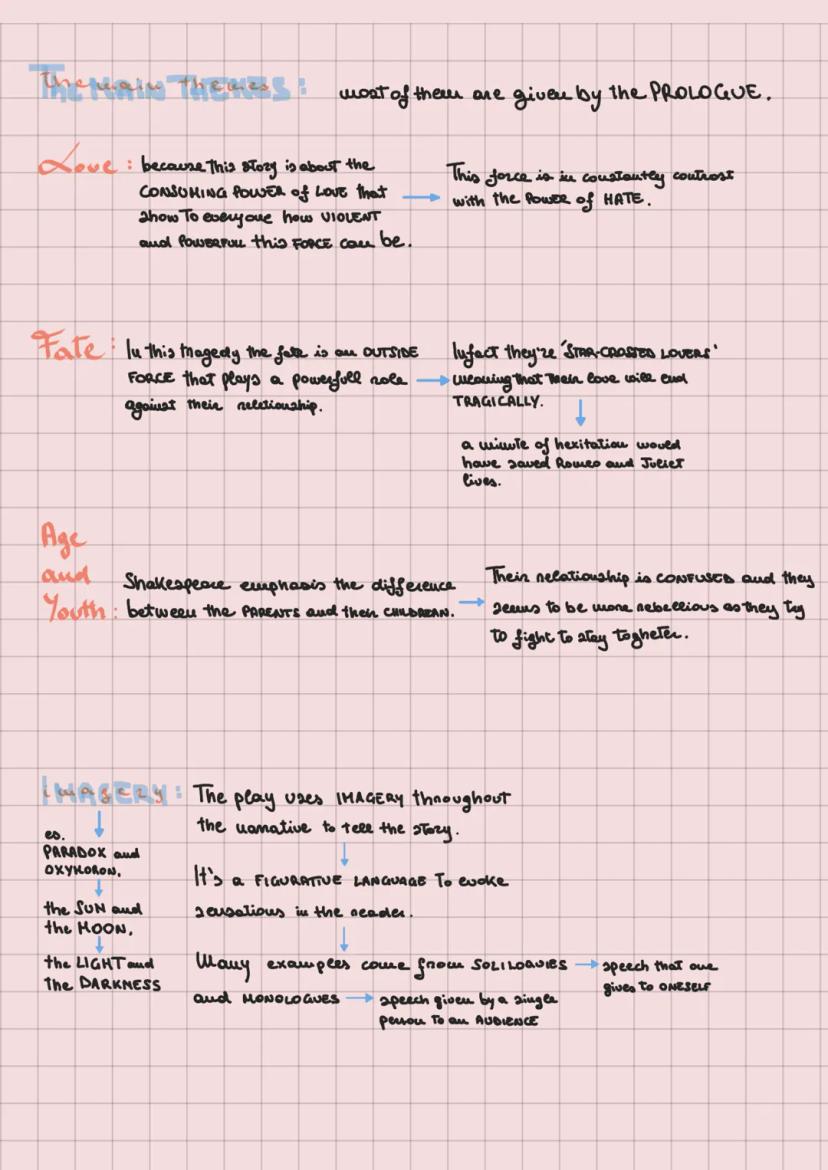 The MAIN THEMES: most of them are given by the PROLOGUE.
Love: because this story is about the
CONSUMING POWER of LOVE that
show To everyone how VIOLENT
and POWERFUL this FORCE can be.
This force is in constantly contrast
with the POWER of HATE.
Fate: In this tragedy the fate is an OUTSIDE
FORCE that plays a powerfull role
against their relationship.
Infact they're 'STAR-CROSSED LOVERS'
meaning that their love will end
TRAGICALLY.
a minute of hexitation would
have saved Romeo and Juliet
lives.
Age
and
Youth:
Shakespeare emphasis the difference
between the PARENTS and their CHILDREAN.
Their relationship is CONFUSED and they
seems to be more rebellious as they try
to fight to stay togheter.
IMAGERY:
es.
PARADOX and
OXYMORON,
the SUN and
the MOON,
the LIGHT and
the DARKNESS
The play uses IMAGERY throughout
the narrative to tell the story.
It's a FIGURATIVE LANGUAGE To evoke
sensations in the reader.
Many examples come from SOLILOQUIES
speech that one
gives to ONESELF
and MONOLOGUES
speech given by a single
person to an AUDIENCE